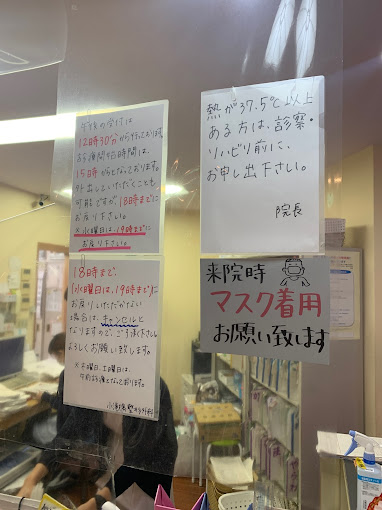 午後の受付は
12時30分から行っております。
お昼開始時間は、
15時からとなっております。
外出していただくことも
可能ですが18時までに
お戻り下さい。
※水曜日は、19時までに
お戻り下さい。
18時まで、
(水曜日は、19時まで)に
お戻りいただかない
場合は、キャンセルと
なりますので、ご了承下さい。
よろしくお願い致します。
※木曜日、土曜日は、
午前診療となっております。
熱が37.5℃以上
ある方は、診察・
リハビリ前に、
お申し出下さい。
院長
来院時
マスク着用
お願い致します